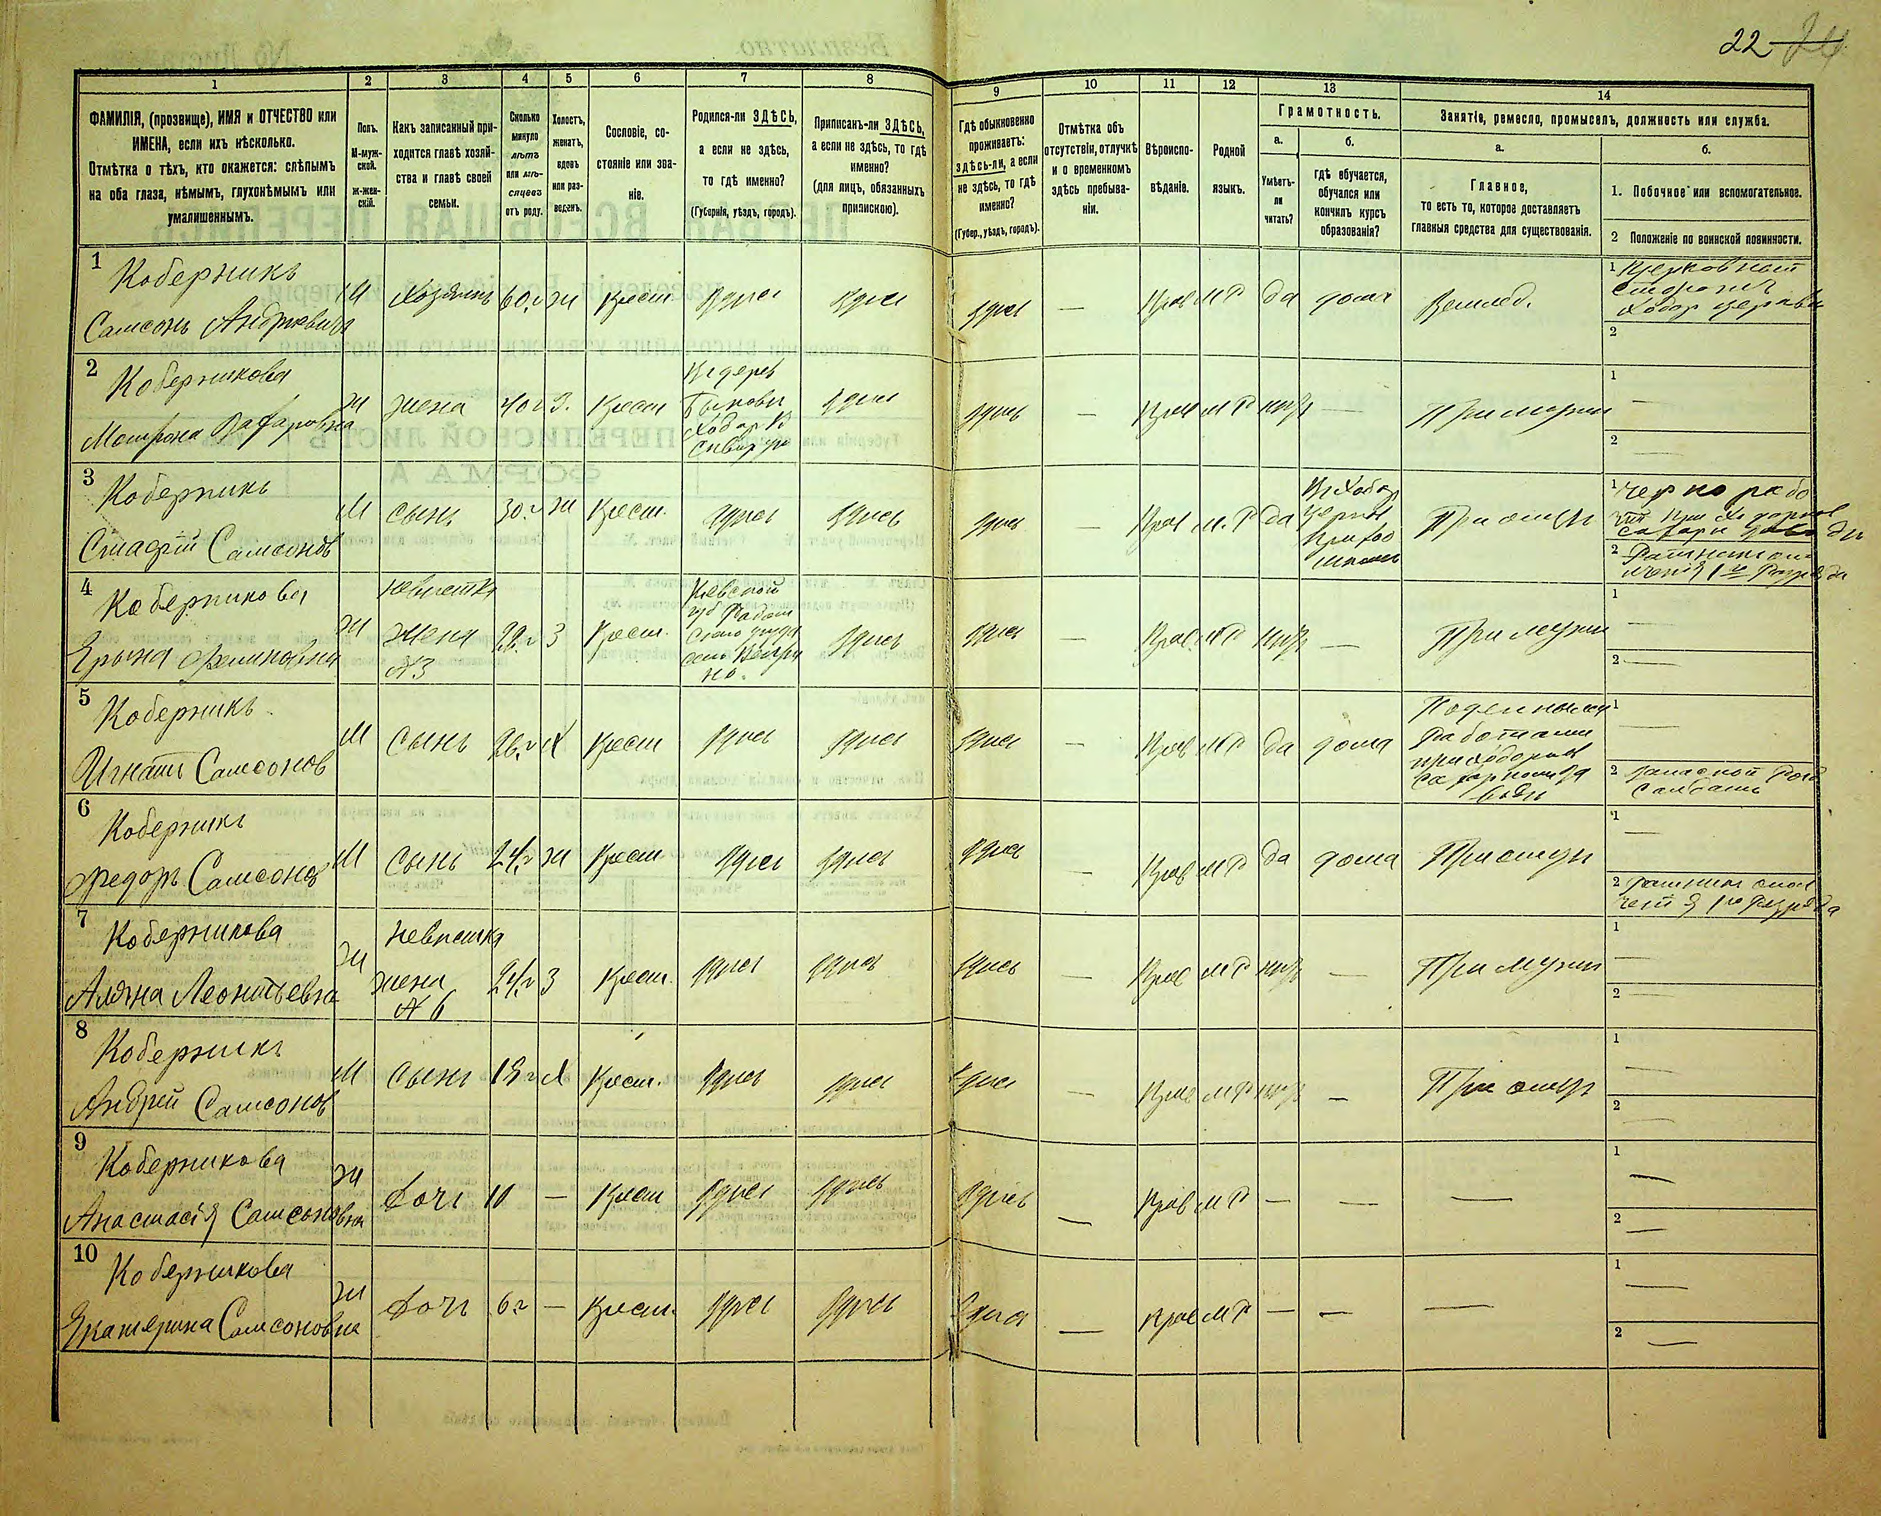 22 24
1 2 3 4 5 6 7 8 9 10 11 12 13 14
ФАМИЛІЯ, (прозвище), ИМЯ и ОТЧЕСТВО или
ИМЕНА, если ихъ нѣсколько.
Отмѣтка о тѣхъ, кто окажется: слѣпымъ
на оба глаза, нѣмымъ, глухонѣмымъ или
умалишеннымъ.
Полъ.
М-муж-
ской.
ж-жен-
скій.
Какъ записанный при-
ходится главѣ хозяй-
ства и главѣ своей
семьи.
Сколько
минуло
лѣтъ
или мѣ-
сяцевъ
отъ роду.
Холостъ,
женатъ,
вдовъ
или раз-
веденъ.
Сословіе, со-
стояніе или зва-
ніе.
Родился-ли ЗДѢСЬ,
а если не здѣсь,
то гдѣ именно?
(Губернія, уѣздъ, городъ).
Приписанъ-ли ЗДѢСЬ,
а если не здѣсь, то гдѣ
именно?
(для лицъ, обязанныхъ
припискою).
Гдѣ обыкновенно
проживаетъ:
здѣсь-ли, а если
не здѣсь, то гдѣ
именно?
(Губер., уѣздъ, городъ).
Отмѣтка объ
отсутствіи, отлучкѣ
и о временномъ
здѣсь пребыва-
ніи.
Вѣроиспо-
вѣданіе.
Родной
языкъ.
Грамотность.
а.
Умѣетъ-
ли
читать?
б.
гдѣ обучается,
обучался или
кончилъ курсъ
образованія?
Занятіе, ремесло, промыселъ, должность или служба.
а.
Главное,
то есть то, которое доставляетъ
главныя средства для существованія.
б.
1. Побочное или вспомогательное.
2 Положеніе по воинской повинности.
1 Коберникъ
Самсонъ Андреевичъ
М Хозяинъ 60 г ж Крест здѣсь здѣсь здѣсь — Прав М Р да дома Землед.
1 Церковный
сторожъ
Ходор церкви
2
2 Коберникова
Матрона Захаровна
Ж жена 40 г З. Крест
Быковы
здѣсь здѣсь — Прав М Р При мужи
1 —
2 —
3 Коберникъ
Самсонов
М сынъ 30 г ж Крест. здѣсь здѣсь здѣсь — Прав М Р да
При отцѣ
1 черно рабо
2 Ратникъ опол
ченія 1го Разряда
4 Коберникова
Ж невѣстка
жена
№3
г З Крест.
Кіевской
губ
здѣсь здѣсь — Прав М Р — При мужи
1 —
2 —
5 Коберникъ
Игнатъ Самсонов
М сынъ 26 г Х Крест здѣсь здѣсь здѣсь — Прав М Р да дома
работаш
1 —
2 запасной
6 Коберникъ
Федоръ Самсонов
М сынъ 24 г ж Крест здѣсь здѣсь здѣсь — Прав М Р да дома При отцѣ
1 —
2 ратникъ опол
ченія 1го разряда
7 Коберникова
Леонтьевна
Ж невѣстка
жена
№ 6
24 г З Крест. здѣсь здѣсь здѣсь — Прав М Р — При мужи
1 —
2 —
8 Коберникъ
Андрей Самсонов
М сынъ Крест. здѣсь здѣсь здѣсь — Прав М Р — При отцѣ
1 —
2 —
9 Коберникова
Анастасія Самсоновна
Ж Дочь — Крест здѣсь здѣсь здѣсь — Прав М Р — — —
1 —
2 —
10 Коберникова
Екатерина Самсоновна
Ж Дочь 6 г — Крест. здѣсь здѣсь здѣсь — Прав М Р — — —
1 —
2 —